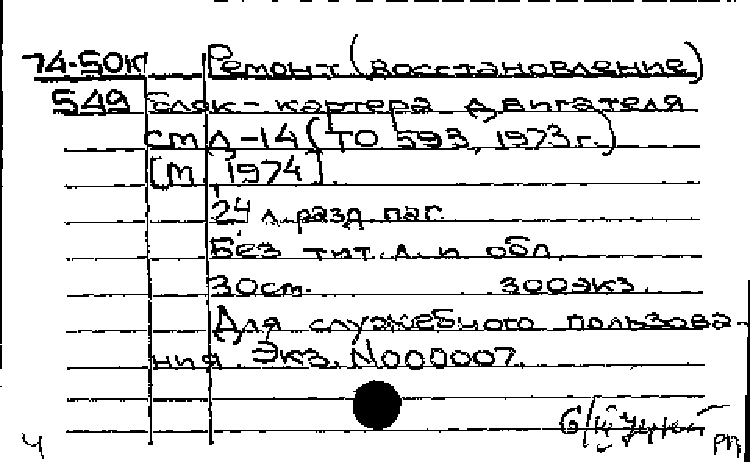 74-50к Ремонт (восстановление)
549 блок-картера двигателя
смд-14 (ТО 593, 1973г.)
[М, 1974].
24 л. разд. паг.
Без тит. л. и обл.
30см. 300экз.
Для служебного пользова-
ния. Экз. N000007.
ч